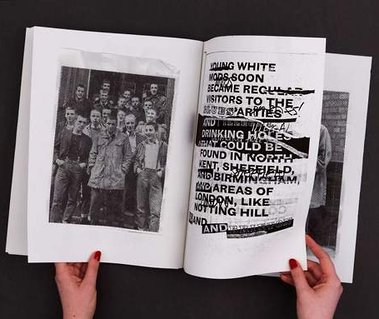 YOUNG WHITE
MODS SOON
BECAME REGULAR
VISITORS TO THE
PARTIES
AND
DRINKING HOLES
THAT COULD BE
FOUND IN NORTH
KENT, SHEFFIELD,
AND BIRMINGHAM,
AND AREAS OF
LONDON, LIKE
NOTTING HILL
AND